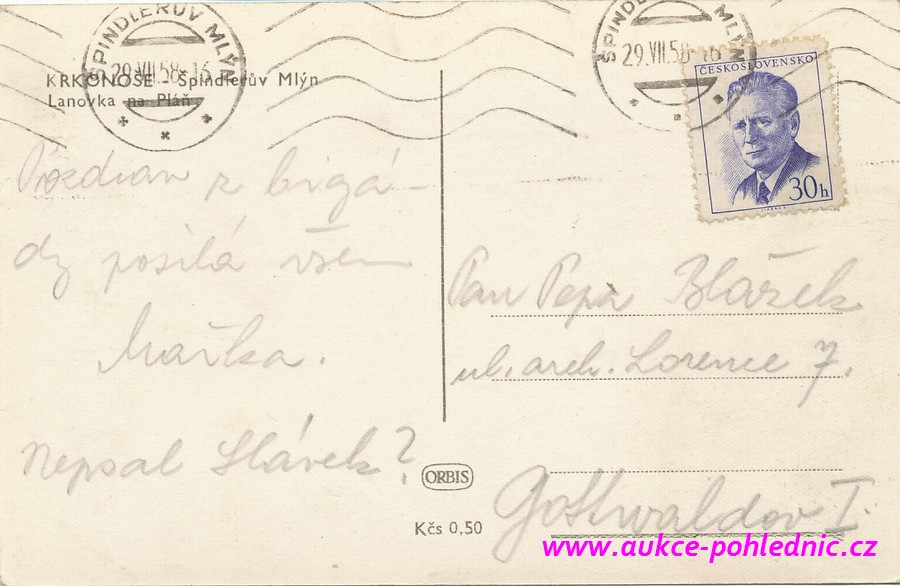 ŠPINDLERŮV MLÝN
29.VII.58-16
ŠPINDLERŮV MLÝN
29.VII.58-16
KRKONOŠE Špindlerův Mlýn
Lanovka na Pláň
ČESKOSLOVENSKO
30h
Pozdrav z brigá-
dy posílá všem
Mařka.
Nepsal Slávek?
Pan Pepa Blážek
ul. arch. Lorence 7.
Gottwaldov I.
ORBIS
Kčs 0,50
www.aukce-pohlednic.cz